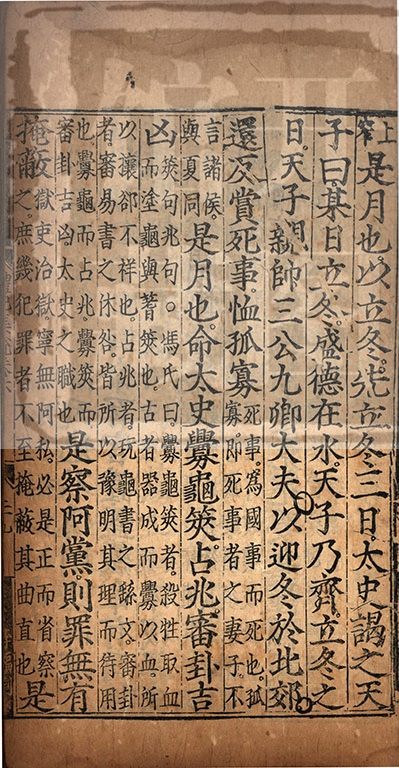 上窄是月也以立冬先立冬三日太史謁之天
子曰某日立冬盛德在水天子乃齊立冬之
日天子親帥三公九卿大夫以迎冬於北郊
還反賞死事恤孤寡死事爲國事而死也孤
寡即死事者之妻子不
言諸侯
與夏同是月也命太史釁龜筴占兆審卦吉
凶筴句兆句○馮氏曰釁龜筴者殺牲取血
而塗龜與蓍筴也古者器成而釁以血所
以禳卻不祥也占兆者玩龜書之繇文審卦
者審易書之休咎皆所以豫明其理而待用
也釁龜而占兆釁筴而
審卦吉凶太史之職也是察阿黨則罪無有
掩蔽獄吏治獄寧無阿私必是正而省察
之庶幾犯罪者不至掩蔽其曲直也是